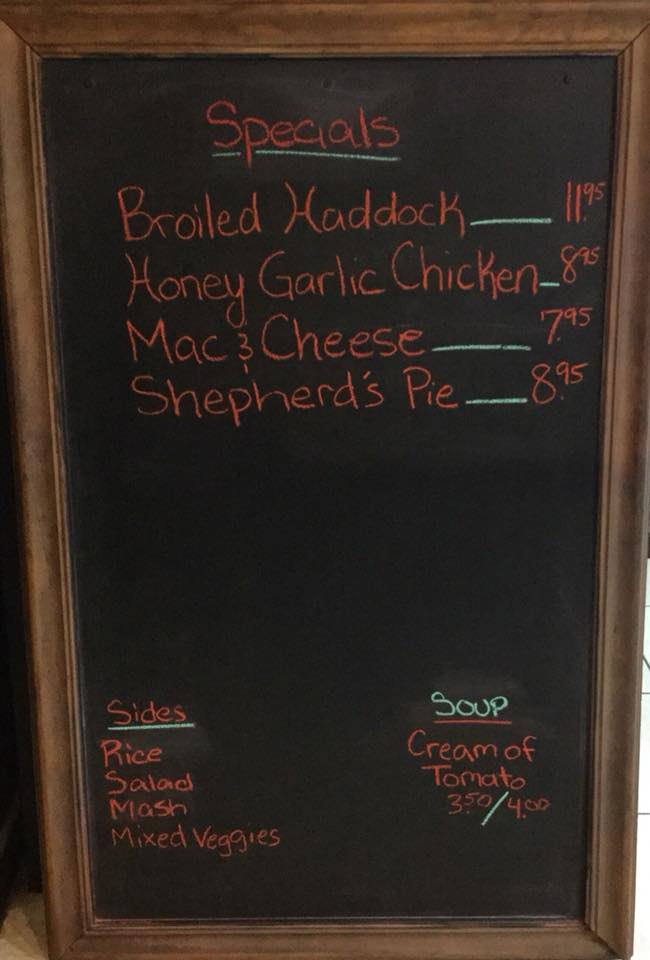 Specials
Broiled Haddock 11.95
Honey Garlic Chicken 8.95
Mac & Cheese 7.95
Shepherd's Pie 8.95
Sides
Rice
Salad
Mash
Mixed Veggies
Soup
Cream of
Tomato
3.50/4.00